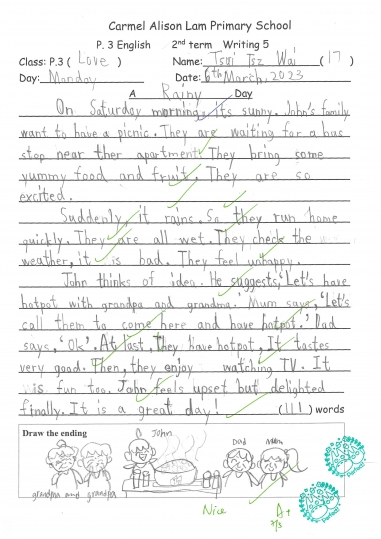 Carmel Alison Lam Primary School
P. 3 English 2nd term Writing 5
Class: P.3 ( Love ) Name: Tsui Tsz Wai ( 17 )
Day: Monday Date: 6th March, 2023
A Rainy Day
On Saturday morning, It's sunny. John's family
want to have a picnic. They are waiting for a bus
stop near ther apartment. They bring some
yummy food and fruit. They are so
excited.
Suddenly, it rains. So they run home
quickly. They are all wet. They check the
weather, it is bad. They feel unhappy.
John thinks of idea. He suggests, 'Let's have
hotpot with grandpa and grandma.' Mum says, 'Let's
call them to come here and have hotpot.' Dad
says, 'Ok'. At last, They have hotpot, It tastes
very good. Then, they enjoy watching TV. It
is fun too. John feels upset but delighted
finally. It is a great day! ( 111 ) words
Draw the ending
John
Dad Mum
grandma and grandpa
Nice A+